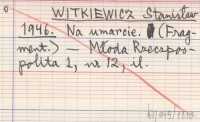 WITKIEWICZ Stanisław
1946. Na umarcie. (Frag-
ment.) — Młoda Rzeczpos-
polita 1, nr 12, il.